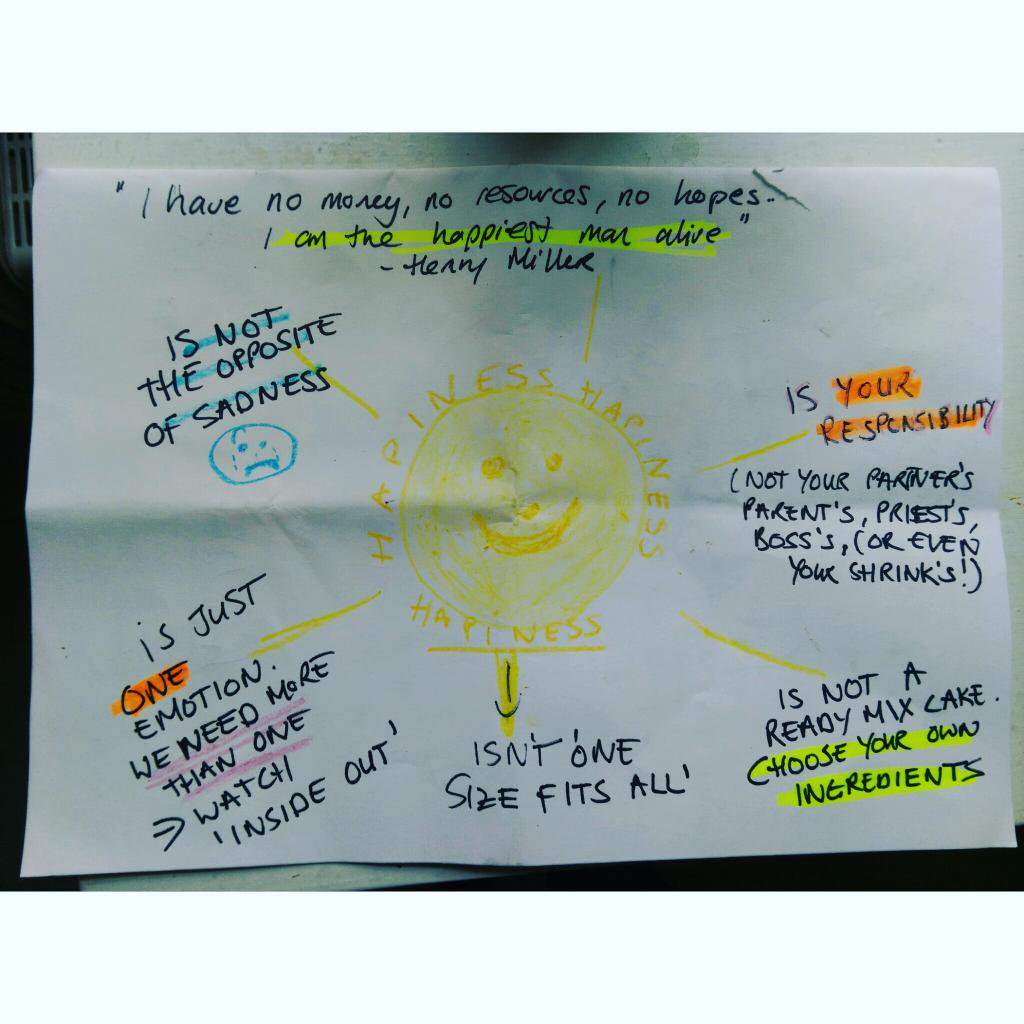 "I have no money, no resources, no hopes..
I am the happiest man alive"
- Henry Miller
IS NOT
THE OPPOSITE
OF SADNESS
HAPPINESS HAPPINESS
HAPPINESS
IS YOUR
RESPONSIBILITY
(NOT YOUR PARTNER'S
PARENT'S, PRIEST'S,
BOSS'S, (OR EVEN
YOUR SHRINK'S!)
iS JUST
ONE
EMOTION.
WE NEED MORE
THAN ONE
⇒ WATCH
'INSIDE OUT'
ISN'T 'ONE
SIZE FITS ALL'
IS NOT A
READY MIX CAKE.
CHOOSE YOUR OWN
INGREDIENTS